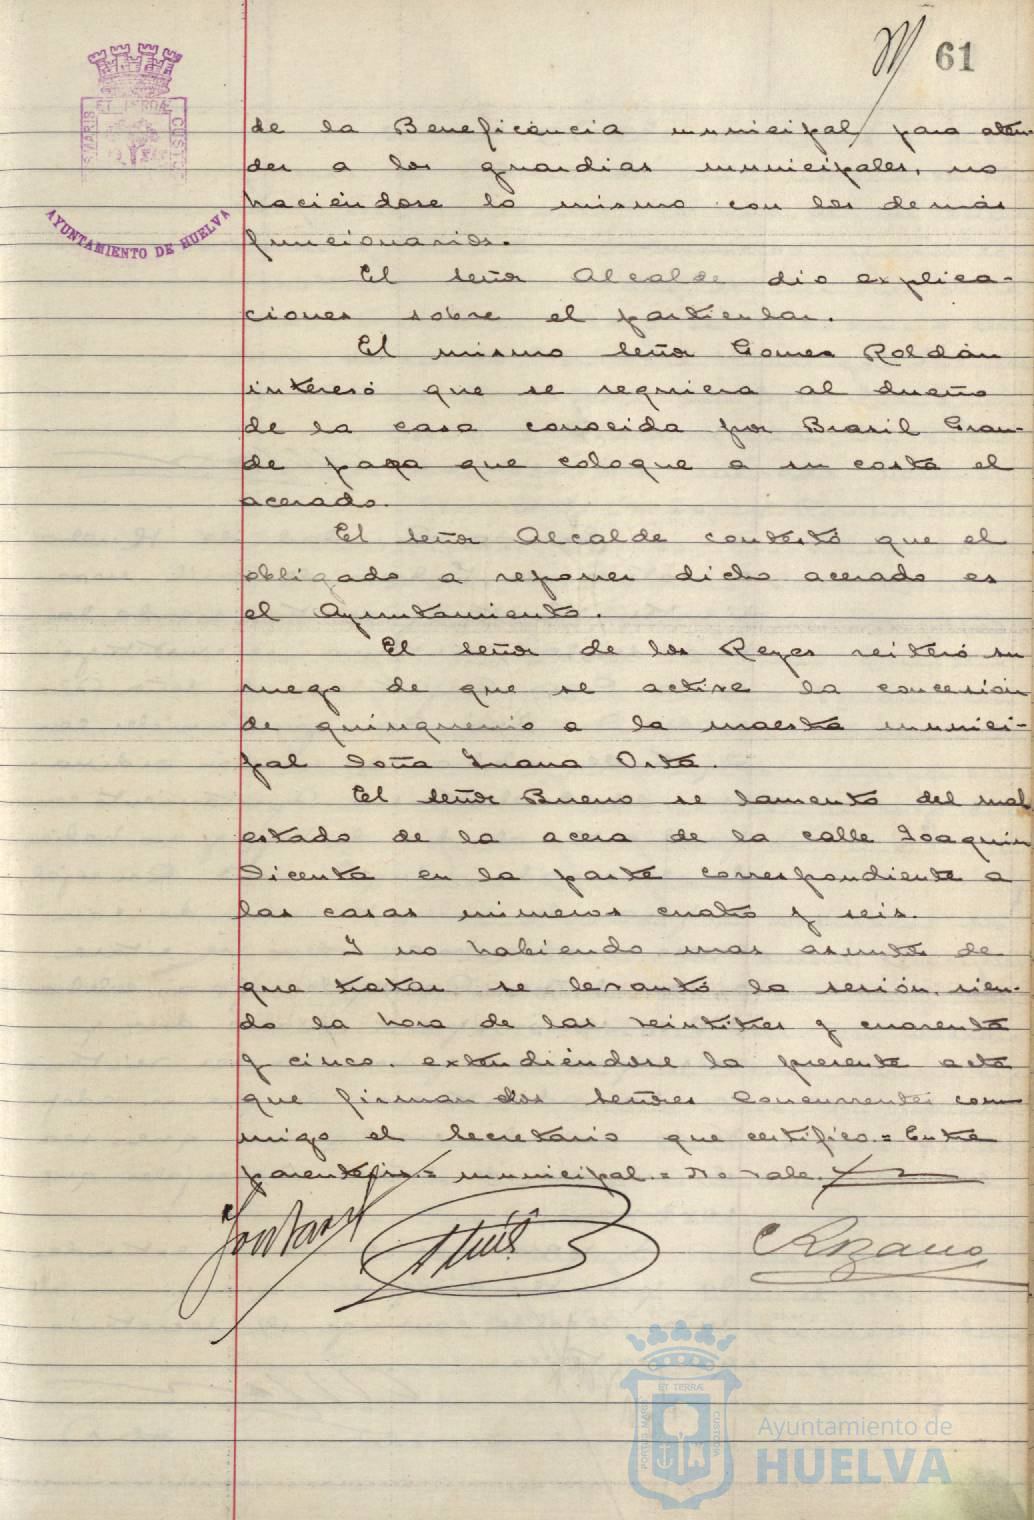 61
ET TERRÆ
AYUNTAMIENTO DE HUELVA
de la Beneficéncia municipal para aten-
der a los guardias municipales, no
haciéndose lo mismo con los demás
funcionarios.
El señor Alcalde dio explica-
ciones sobre el particular.
El mismo señor Gomez Roldán
interesó que se requiera al dueño
de la casa conocida por Brasil Gran-
de paga que coloque a su costa el
acerado.
El señor Alcalde contestó que el
obligado a reponer dicho acerado es
el Ayuntamiento.
El señor de los Reyes reiteró su
ruego de que se active la concesión
de quinquenio a la maestra munici-
pal doña Juana Orta.
El señor Bueno se lamentó del mal
estado de la acera de la calle Joaquin
Dicenta en la parte correspondiente a
las casas números cuatro y seis.
Y no habiendo mas asuntos de
que tratar se levantó la sesión, sien-
do la hora de las veintitres y cuarenta
y cinco, extendiéndose la presente acta
que firman los señores concurrentes con-
migo el Secretario que certifico.= Entre
parentesis.= municipal.= No vale.
PORTUS MARIS
ET TERRÆ
CUSTODIA
Ayuntamiento de
HUELVA